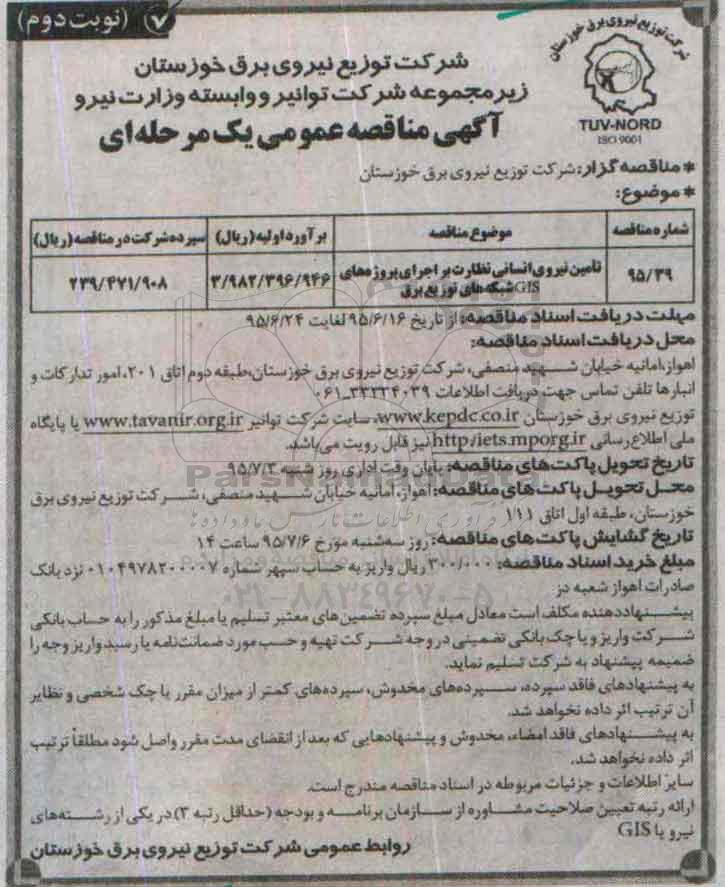 (نوبت دوم)
شرکت توزیع نیروی برق خوزستان
TUV-NORD
ISO 9001
شرکت توزیع نیروی برق خوزستان
زیرمجموعه شرکت توانیر و وابسته وزارت نیرو
آگهی مناقصه عمومی یک مرحله‌ای
* مناقصه گزار: شرکت توزیع نیروی برق خوزستان
* موضوع:
شماره مناقصه موضوع مناقصه برآورد اولیه (ریال) سپرده شرکت در مناقصه (ریال)
۹۵/۳۹ تامین نیروی انسانی نظارت بر اجرای پروژه‌های GIS شبکه های توزیع برق ۳/۹۸۲/۳۹۶/۹۴۶ ۲۳۹/۴۷۱/۹۰۸
مهلت دریافت اسناد مناقصه: از تاریخ ۹۵/۶/۱۶ لغایت ۹۵/۶/۲۴
محل دریافت اسناد مناقصه:
اهواز، امانیه خیابان شهید منصفی، شرکت توزیع نیروی برق خوزستان، طبقه دوم اتاق ۲۰۱، امور تدارکات و
انبارها تلفن تماس جهت دریافت اطلاعات ۳۳۳۳۴۰۳۹-۰۶۱
توزیع نیروی برق خوزستان www.kepdc.co.ir، سایت شرکت توانیر www.tavanir.org.ir یا پایگاه
ملی اطلاع رسانی http:/iets.mporg.ir نیز قابل رویت می‌باشد.
تاریخ تحویل پاکت های مناقصه: پایان وقت اداری روز شنبه ۹۵/۷/۳
محل تحویل پاکت های مناقصه: اهواز، امانیه خیابان شهید منصفی، شرکت توزیع نیروی برق
خوزستان، طبقه اول اتاق ۱۱۱
تاریخ گشایش پاکت های مناقصه: روز سه‌شنبه مورخ ۹۵/۷/۶ ساعت ۱۴
مبلغ خرید اسناد مناقصه: ۳۰۰/۰۰۰ ریال واریز به حساب سپهر شماره ۰۱۰۴۹۷۸۲۰۰۰۰۷ نزد بانک
صادرات اهواز شعبه دز
پیشنهاددهنده مکلف است معادل مبلغ سپرده تضمین‌های معتبر تسلیم یا مبلغ مذکور را به حساب بانکی
شرکت واریز و یا چک بانکی تضمینی در وجه شرکت تهیه و حسب مورد ضمانت‌نامه یا رسید واریز وجه را
ضمیمه پیشنهاد به شرکت تسلیم نماید.
به پیشنهادهای فاقد سپرده، سپرده‌های مخدوش، سپرده‌های کمتر از میزان مقرر یا چک شخصی و نظایر
آن ترتیب اثر داده نخواهد شد.
به پیشنهادهای فاقد امضاء، مخدوش و پیشنهادهایی که بعد از انقضای مدت مقرر واصل شود مطلقاً ترتیب
اثر داده نخواهد شد.
سایر اطلاعات و جزئیات مربوطه در اسناد مناقصه مندرج است.
ارائه رتبه تعیین صلاحیت مشاوره از سازمان برنامه و بودجه (حداقل رتبه ۳) در یکی از رشته‌های
نیرو یا GIS
روابط عمومی شرکت توزیع نیروی برق خوزستان
ParsNamadData
۰۲۱-۸۸۳۴۹۶۷۰-۵